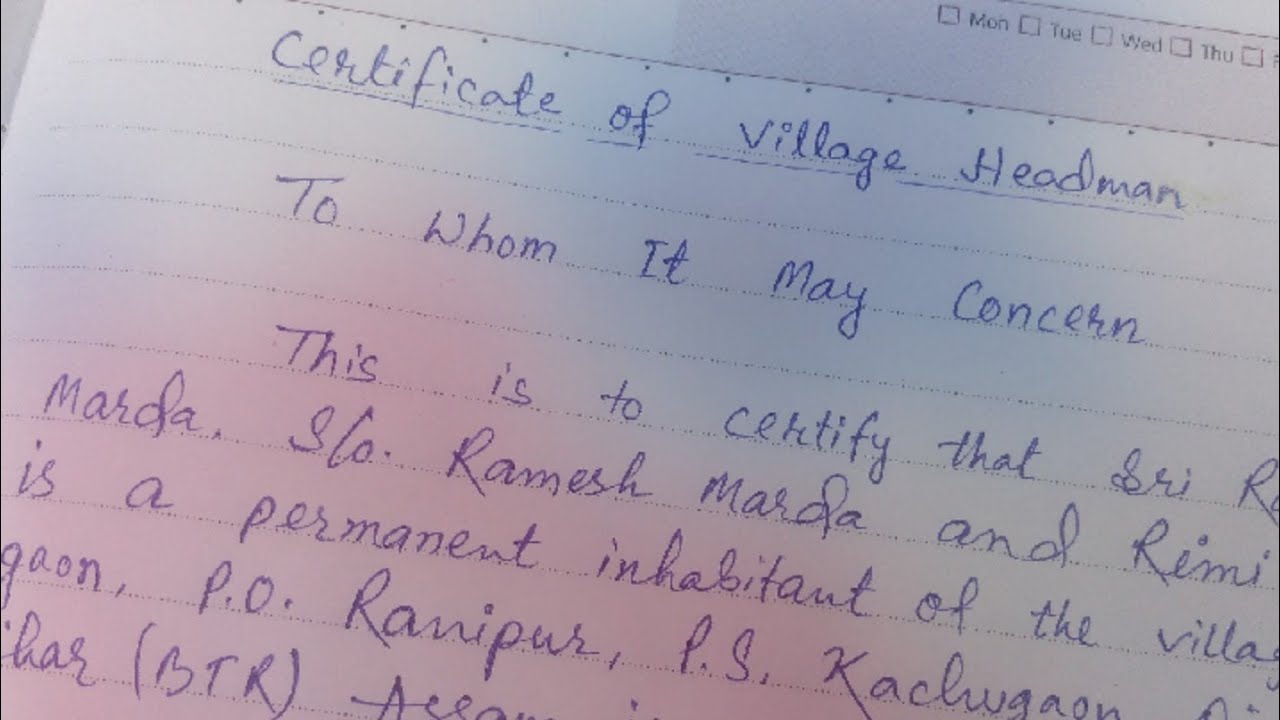 Mon Tue Wed Thu
Certificate of Village Headman
To Whom It May Concern
This is to certify that Sri
Marda, S/o. Ramesh Marda and Rimi
is a permanent inhabitant of the
P.O. Ranipur, P.S. Kachugaon
(BTR) Assam